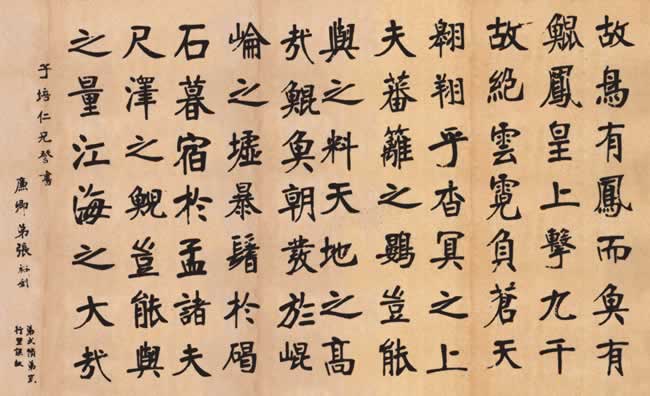 故鳥有鳳而魚有
鯤鳳皇上擊九千
故絕雲霓負蒼天
翱翔乎杳冥之上
夫蕃籬之鷃豈能
與之料天地之高
哉鯤魚朝發於崐
崘之墟暴鬐於碣
石暮宿於孟諸夫
尺澤之鯢豈能與
之量江海之大哉
子培仁兄詧書
廉卿弟張裕釗
行里誤故